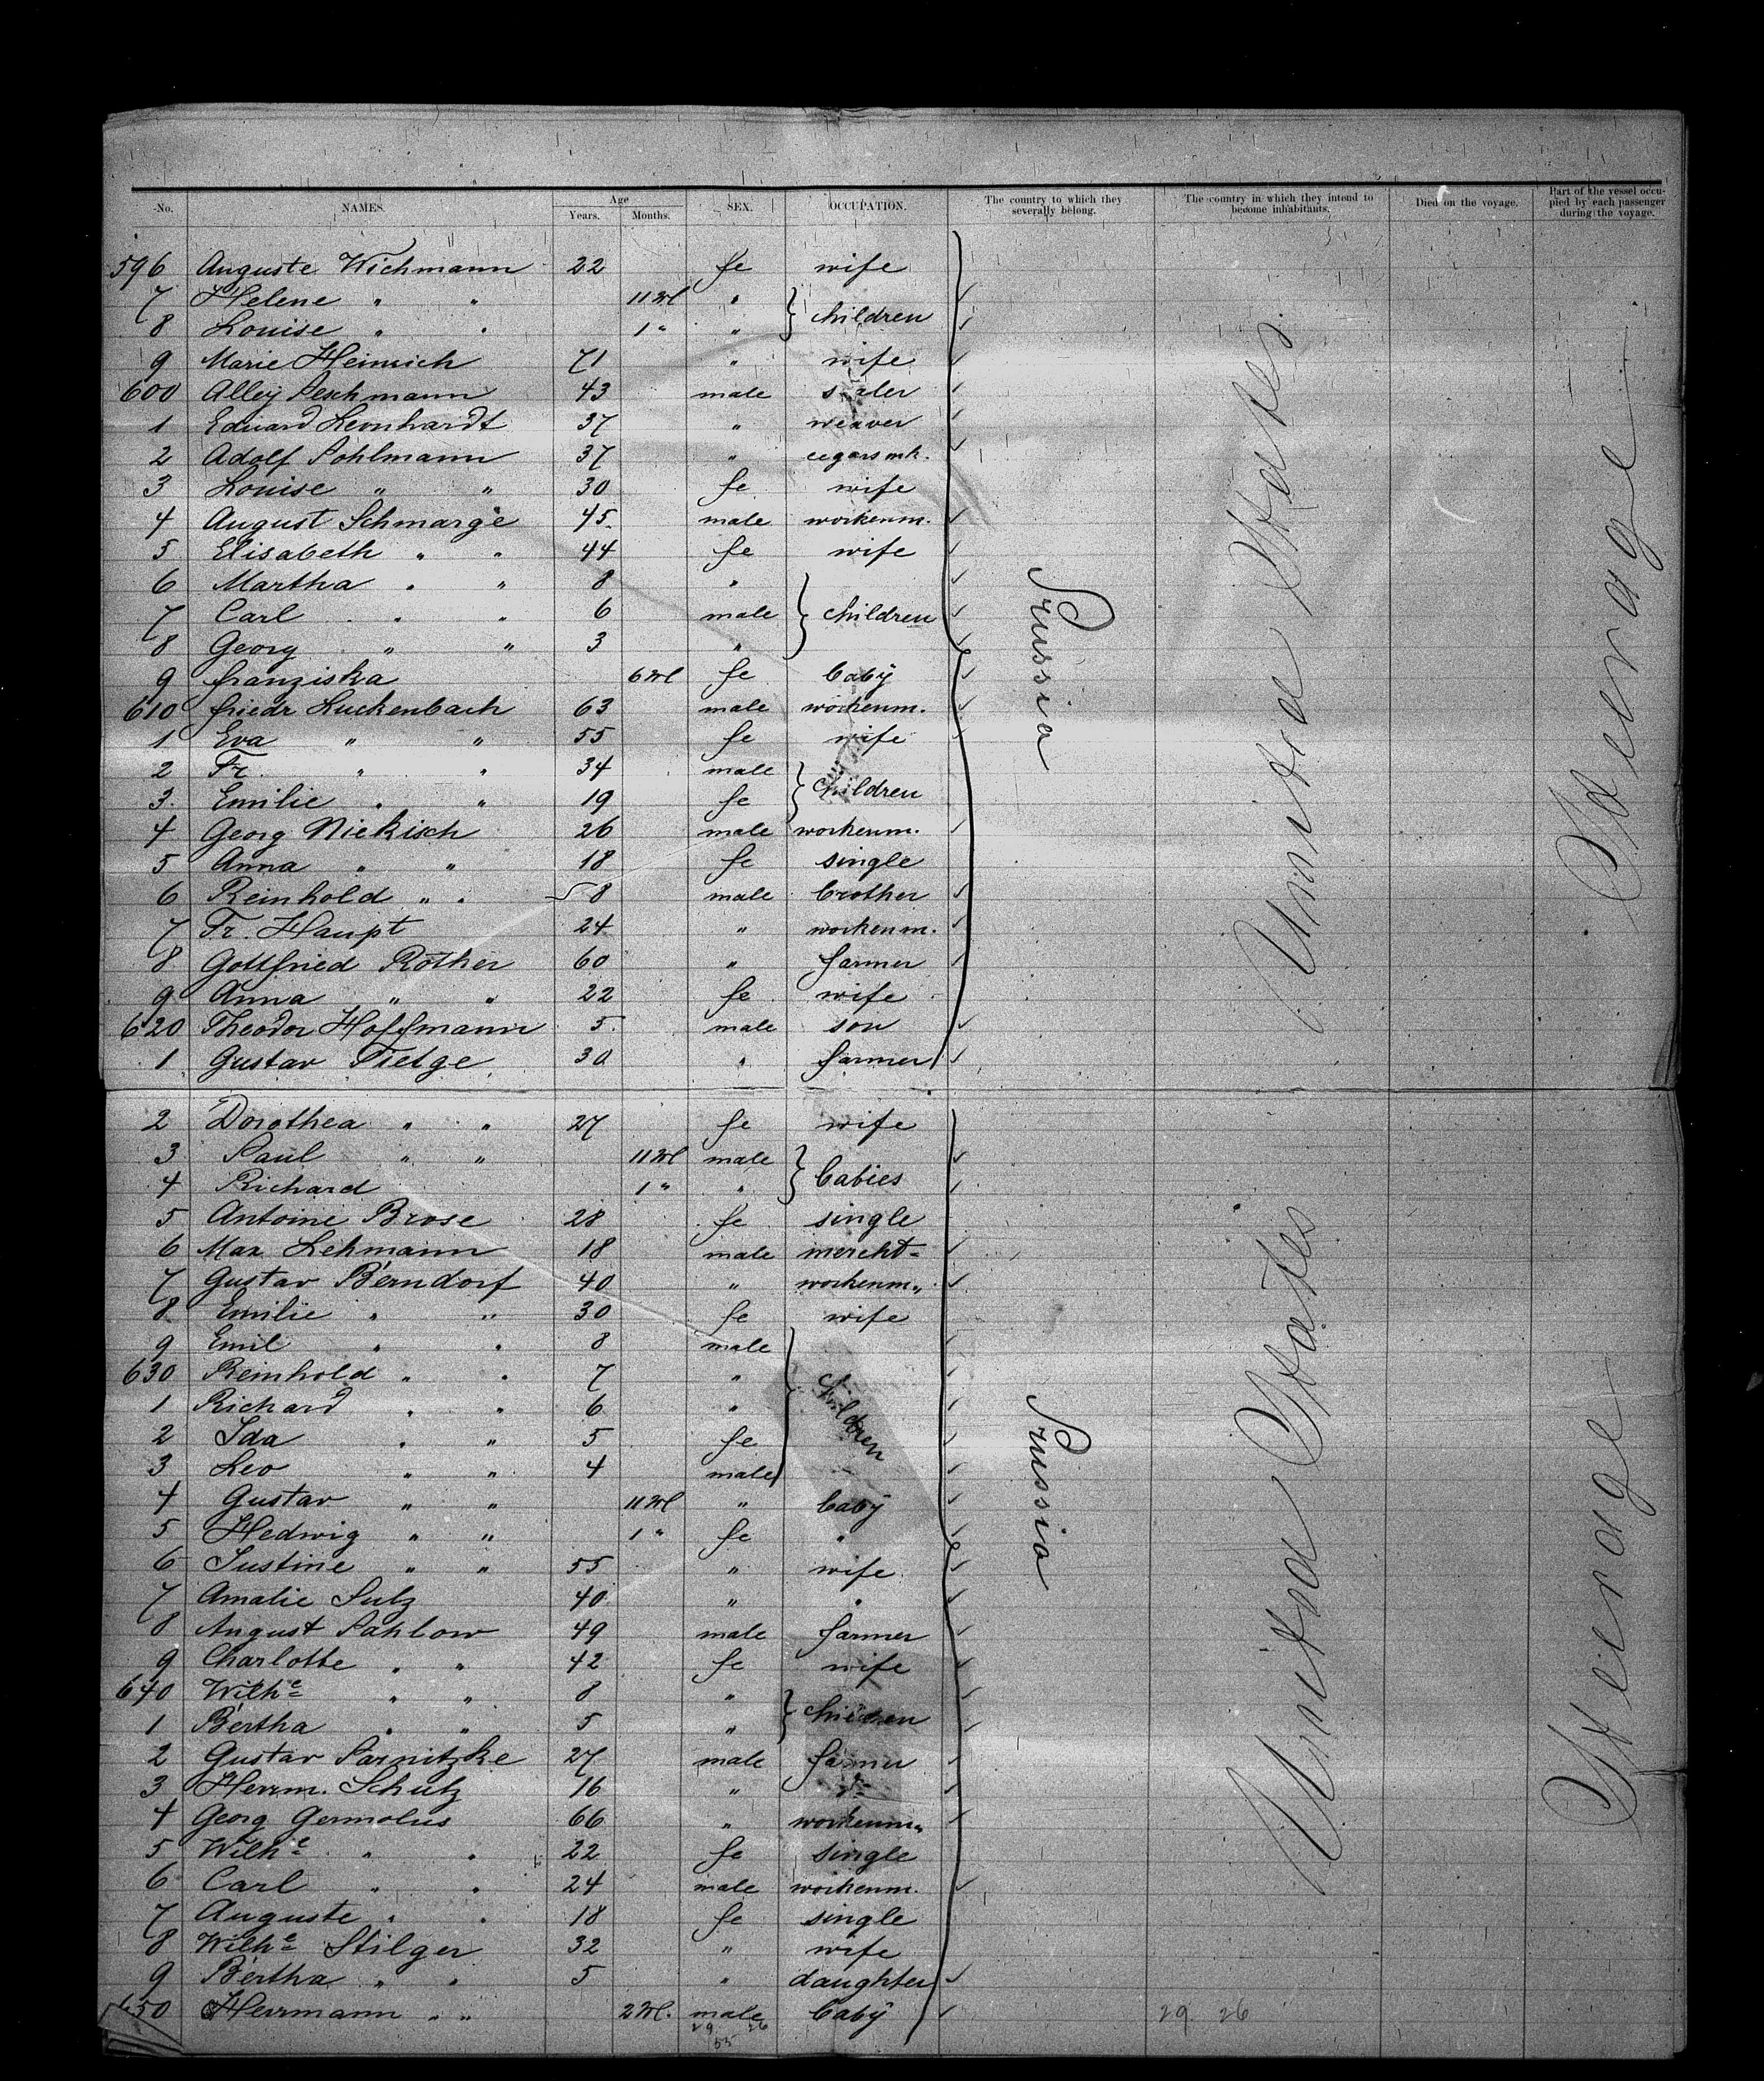 No. NAMES. Age Years. Months. SEX. OCCUPATION. The country to which they severally belong. The country in which they intend to become inhabitants. Died on the voyage. Part of the vessel occupied by each passenger during the voyage.
596 Auguste Wichmann 22 fe wife
7 Helene " " 11 M fe " children
8 Louise " " 1 " "
9 Marie Heinrich 71 " wife
600 Alley Peschmann 43 male
1 Eduard Leonhardt 37 " weaver
2 Adolf Pohlmann 37 " cegarsmk.
3 Louise " " 30 fe wife
4 August Schmarge 45 male workenm.
5 Elisabeth " " 44 fe wife
6 Martha " " 8 "
7 Carl " " 6 male children
8 Georg " " 3 "
9 franziska 6 M fe baby
610 friedr Luckenbach 63 male workenm.
1 Eva " " 55 fe wife
2 Fr. " " 34 male
3 Emilie " " 19 fe children
4 Georg Niekisch 26 male workenm.
5 Anna " " 18 fe single
6 Reinhold " " 8 male brother
7 Fr. Haupt 24 " workenm.
8 Gottfried Rother 60 " farmer
9 Anna " " 22 fe wife
620 Theodor Hoffmann 5 male son
1 Gustav Tietge 30 " farmer
Prussia United States. Steerage
2 Dorothea " " 27 fe wife
3 Paul " " 11 M male babies
4 Richard 1 " "
5 Antoine Brose 28 fe single
6 Max Lehmann 18 male mercht
7 Gustav Berndorf 40 " workenm"
8 Emilie " " 30 fe wife
9 Emil " " 8 male
630 Reinhold " " 7 "
1 Richard " " 6 " children
2 Ida " " 5 fe
3 Leo " " 4 male
4 Gustav " " 11 M " baby
5 Hedwig " " 1 " fe "
6 Justine " " 55 " wife
7 Amalie Sulz 40 " "
8 August Pahlow 49 male farmer
9 Charlotte " " 42 fe wife
640 Wilhe " " 8 "
1 Bertha " " 5 " children
2 Gustav Parnitzke 27 male farmer
3 Herrm. Schulz 16 "
4 Georg Germolus 66 " workenm"
5 Wilhe " " 22 fe single
6 Carl " " 24 male workenm.
7 Auguste " " 18 fe single
8 Wilhe Stilger 32 " wife
9 Bertha " " 5 " daughter
650 Herrmann " " 2 M. male baby
Prussia United States Steerage
29 26
55
29 26